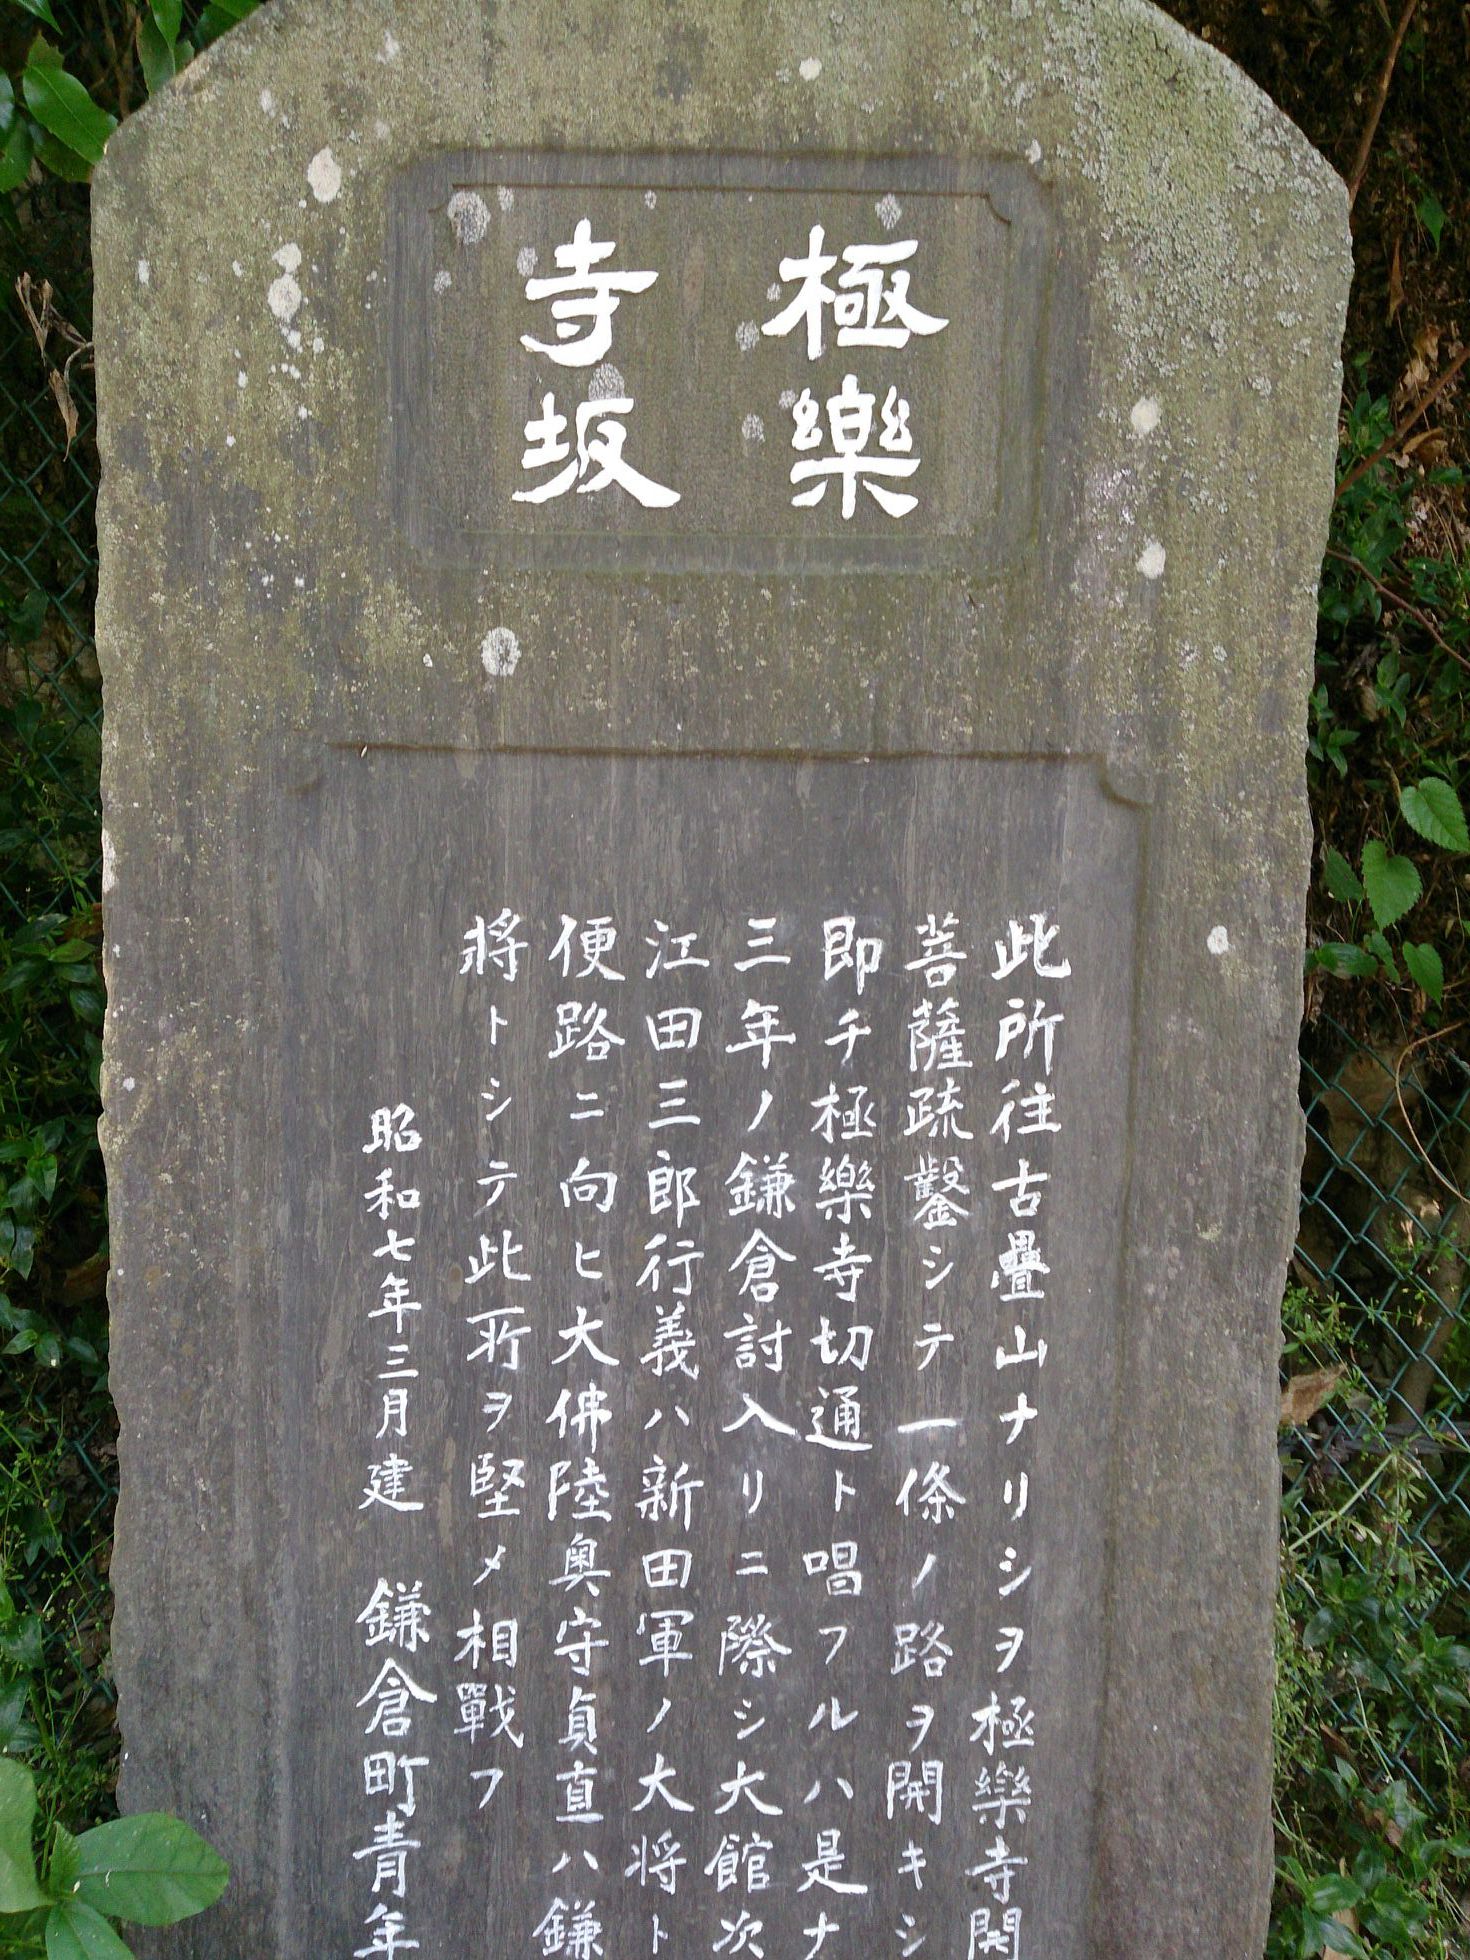 極樂
寺坂
此所往古疊山ナリシヲ極樂寺開
菩薩疏鑿シテ一條ノ路ヲ開キシ
即チ極樂寺切通ト唱フルハ是ナ
三年ノ鎌倉討入リニ際シ大館次
江田三郎行義ハ新田軍ノ大将ト
便路ニ向ヒ大佛陸奥守貞直ハ鎌
將トシテ此所ヲ堅メ相戰フ
昭和七年三月建 鎌倉町青年